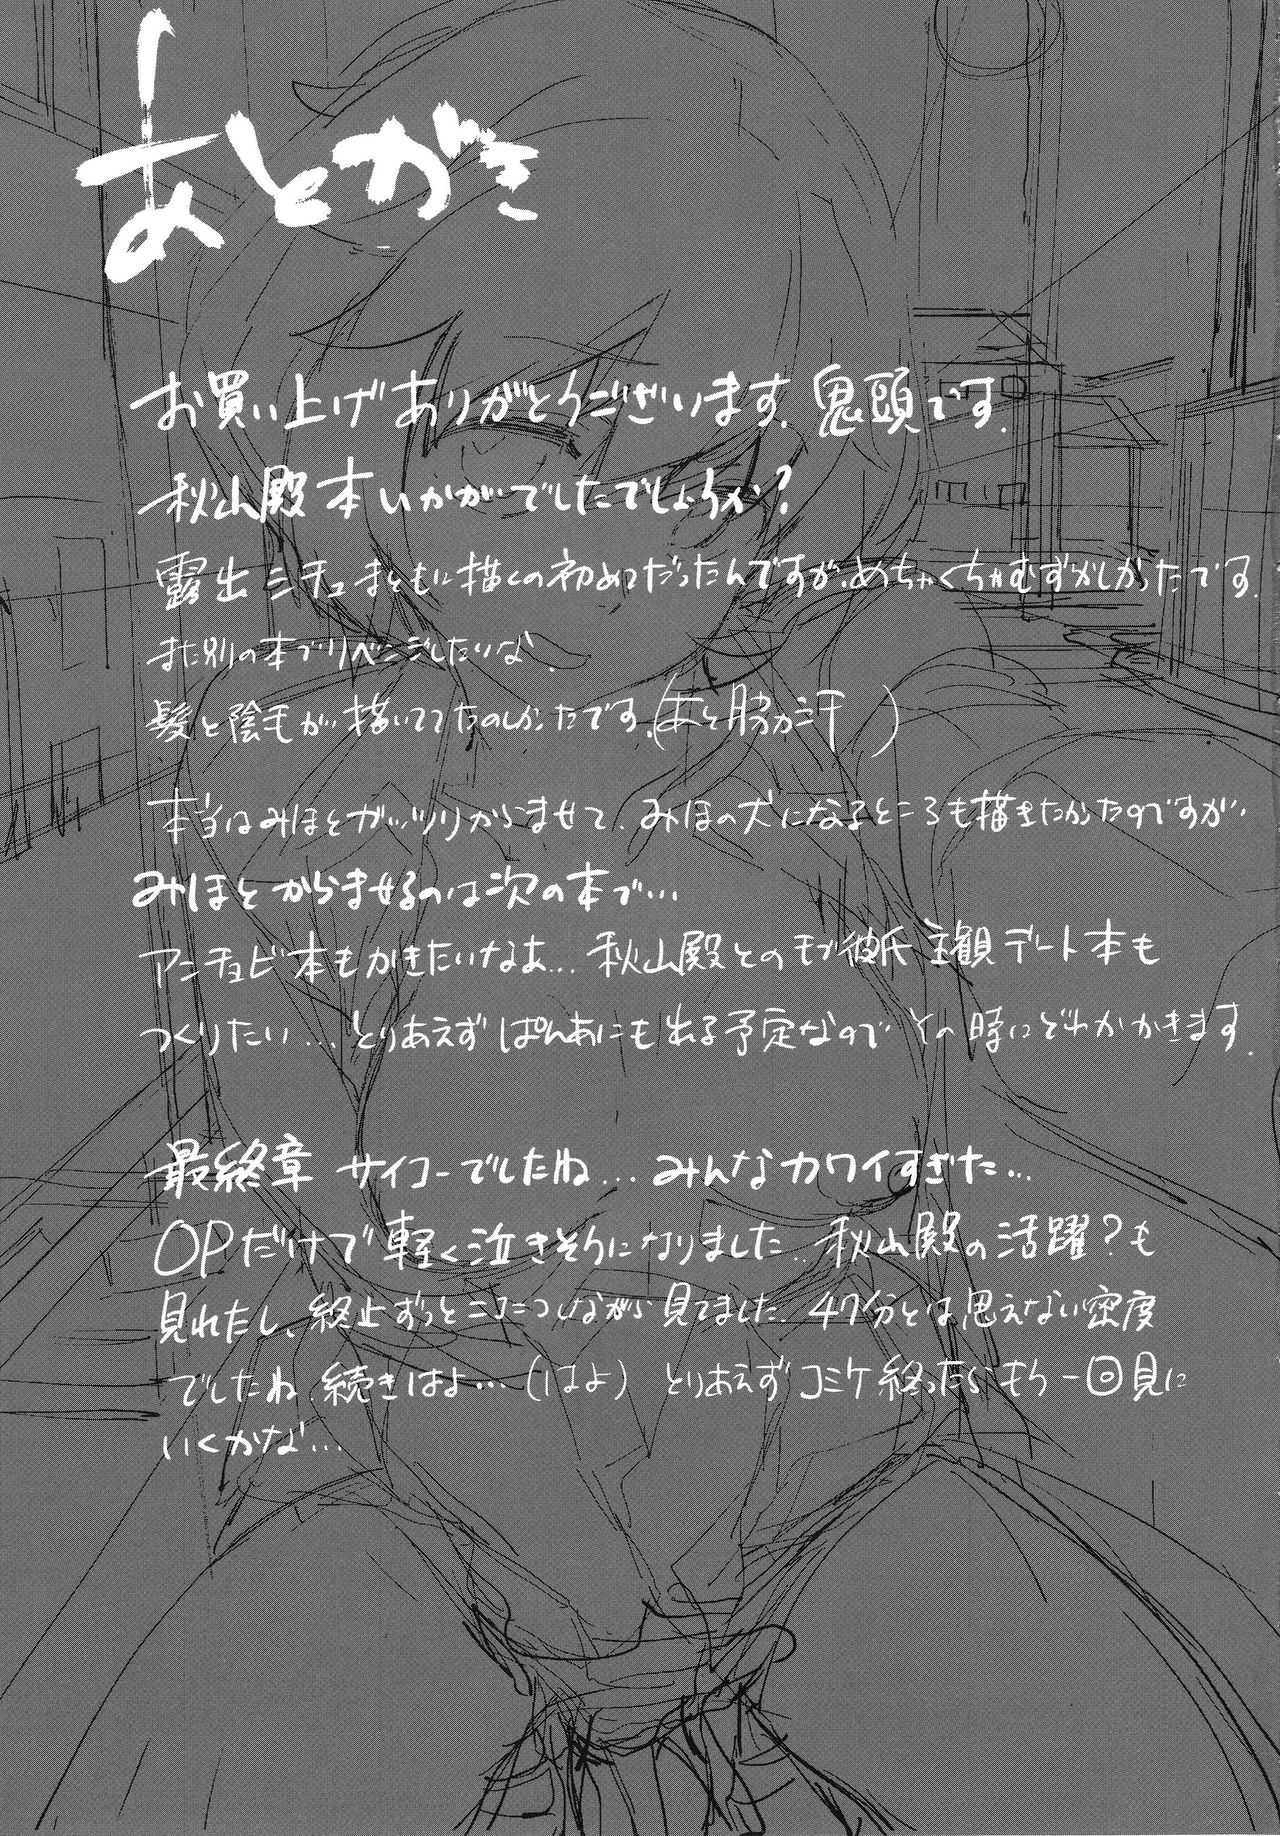 あとがき
お買い上げありがとうございます。鬼頭です。
秋山殿本いかがでしたでしょうか？
露出シチュまともに描くの初めてだったんですが、めちゃくちゃむずかしかったです。
また別の本でリベンジしたいな。
髪と陰毛が描いててたのしかったです。(あと脇カ汗　)
本当はみほとガッツリからませて、みほの犬になるところも描きたかったのですが、
みほとからませるのは次の本で…
アンチョビ本もかきたいなあ…秋山殿とのモブ彼氏主観デート本も
つくりたい…とりあえずぱんあにも出る予定なのでその時にどれかかきます。
最終章サイコーでしたね…みんなカワイすぎた…
OPだけで軽く泣きそうになりました…秋山殿の活躍？も
見れたし、終止ずっとニコニコしながら見てました。47分とは思えない密度
でしたね、続きはよ…(はよ)とりあえずコミケ終ったらもう一回見に
いくかな…